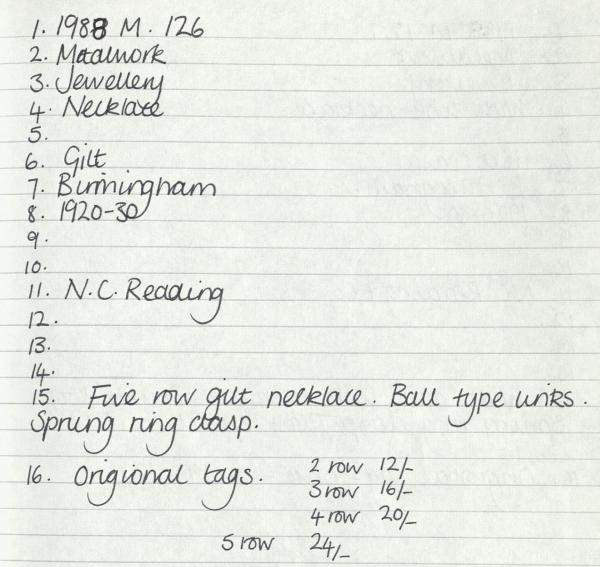 1. 1988 M. 126
2. Metalwork
3. Jewellery
4. Necklace
5.
6. Gilt
7. Birmingham
8. 1920-30
9.
10.
11. N.C. Reading
12.
13.
14.
15. Five row gilt necklace. Ball type links.
Sprung ring clasp.
16. Origional tags. 2 row 12/-
3 row 16/-
4 row 20/-
5 row 24/-